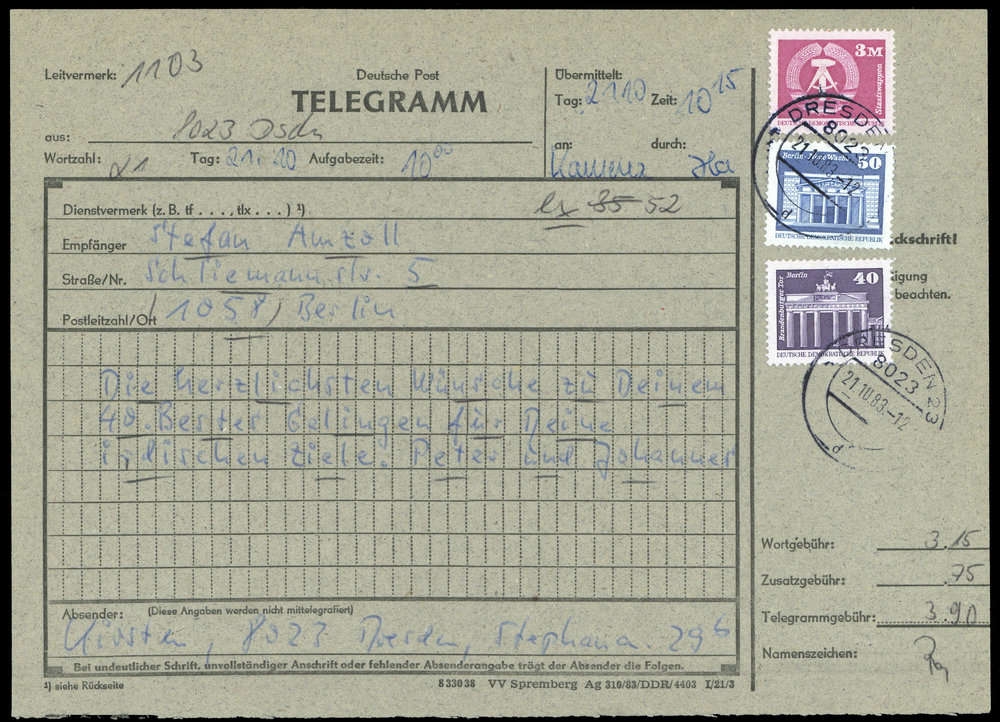 Leitvermerk: 1103
Deutsche Post
TELEGRAMM
aus: 8023 Dsdn
Wortzahl: 21 Tag: 21.10 Aufgabezeit: 10 00
Übermittelt:
Tag: 2110 Zeit: 10 15
an: durch:
Kamenz
Dienstvermerk (z. B. tf . . . ., tlx . . . ) ¹) lx 35 52
Empfänger Stefan Amzoll
Straße/Nr. Schliemannstr. 5
Postleitzahl/Ort 1058, Berlin
Die herzlichsten Wünsche zu Deinem
40. Bestes Gelingen für Deine
irdischen Ziele. Peter und Johannes
Absender: (Diese Angaben werden nicht mittelegrafiert)
8023 Dresden, 29b
Bei undeutlicher Schrift, unvollständiger Anschrift oder fehlender Absenderangabe trägt der Absender die Folgen.
¹) siehe Rückseite
833038 VV Spremberg Ag 310/83/DDR/4403 I/21/3
3 M
Staatswappen
DEUTSCHE DEMOKRATISCHE REPUBLIK
DRESDEN
8023
21.10.83.-12
Berlin · Neue Wache
50
DEUTSCHE DEMOKRATISCHE REPUBLIK
ckschrift!
igung
beachten.
Berlin
40
Brandenburger Tor
DEUTSCHE DEMOKRATISCHE REPUBLIK
DRESDEN 23
8023
21.10.83.-12
Wortgebühr: 3.15
Zusatzgebühr: .75
Telegrammgebühr: 3.90
Namenszeichen: